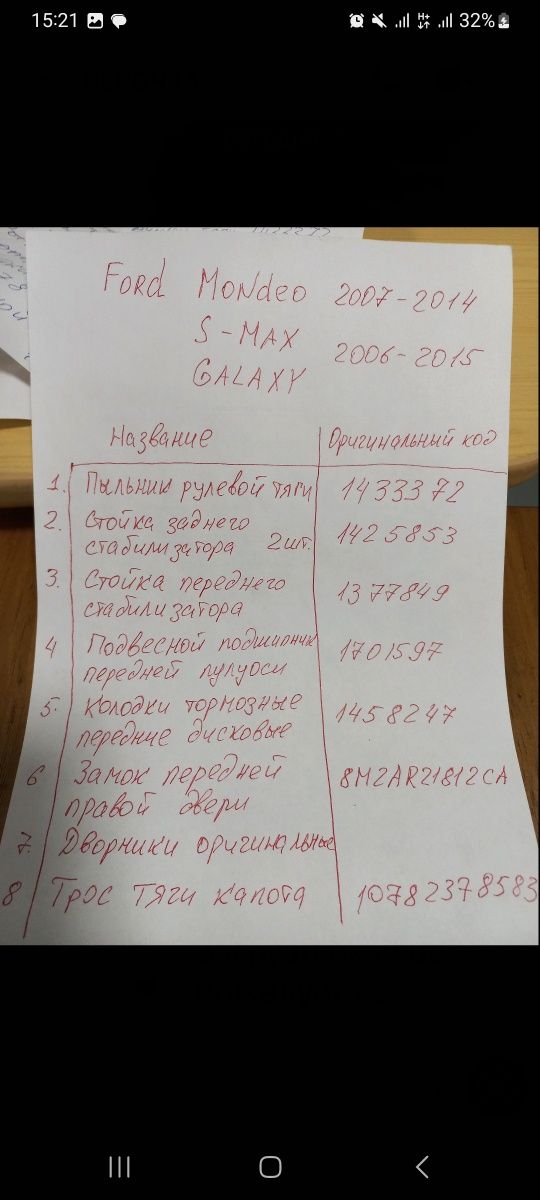 15:21
32%
Ford Mondeo 2007-2014
S-MAX
GALAXY
2006-2015
Название
Оригинальный код
1. Пыльник рулевой тяги 1433372
2. Стойка заднего
стабилизатора 2шт. 1425853
3. Стойка переднего
стабилизатора 1377849
4 Подвесной подшипник
передней полуоси 1701597
5. Колодки тормозные
передние дисковые 1458247
6 Замок передней
правой двери 8M2AR21812CA
7. Дворники оригинальные
8 Трос тяги капота 10782378583